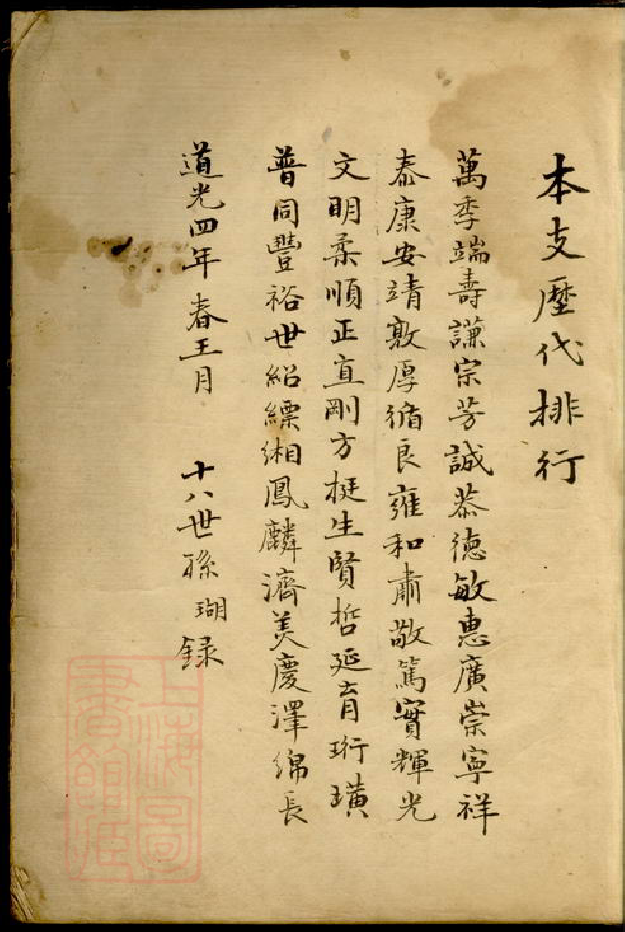 本支歷代排行
萬季端壽謙宗芳誠恭德敏惠廣崇寧祥
泰康安靖敦厚循良雍和肅敬篤實輝光
文明柔順正直剛方挺生賢哲延育珩璜
普同豐裕世紹縹緗鳳麟濟美慶澤綿長
道光四年春王月 十八世孫瑚録
上海圖書館藏